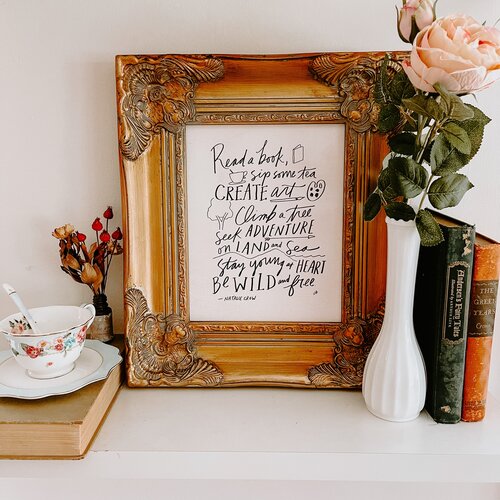 Read a book,
sip some tea
CREATE art
Climb a tree
seek ADVENTURE
on LAND and Sea
Stay young at HEART
BE WILD and free
- NATALIE CROW
Andersen's Fairy Tales